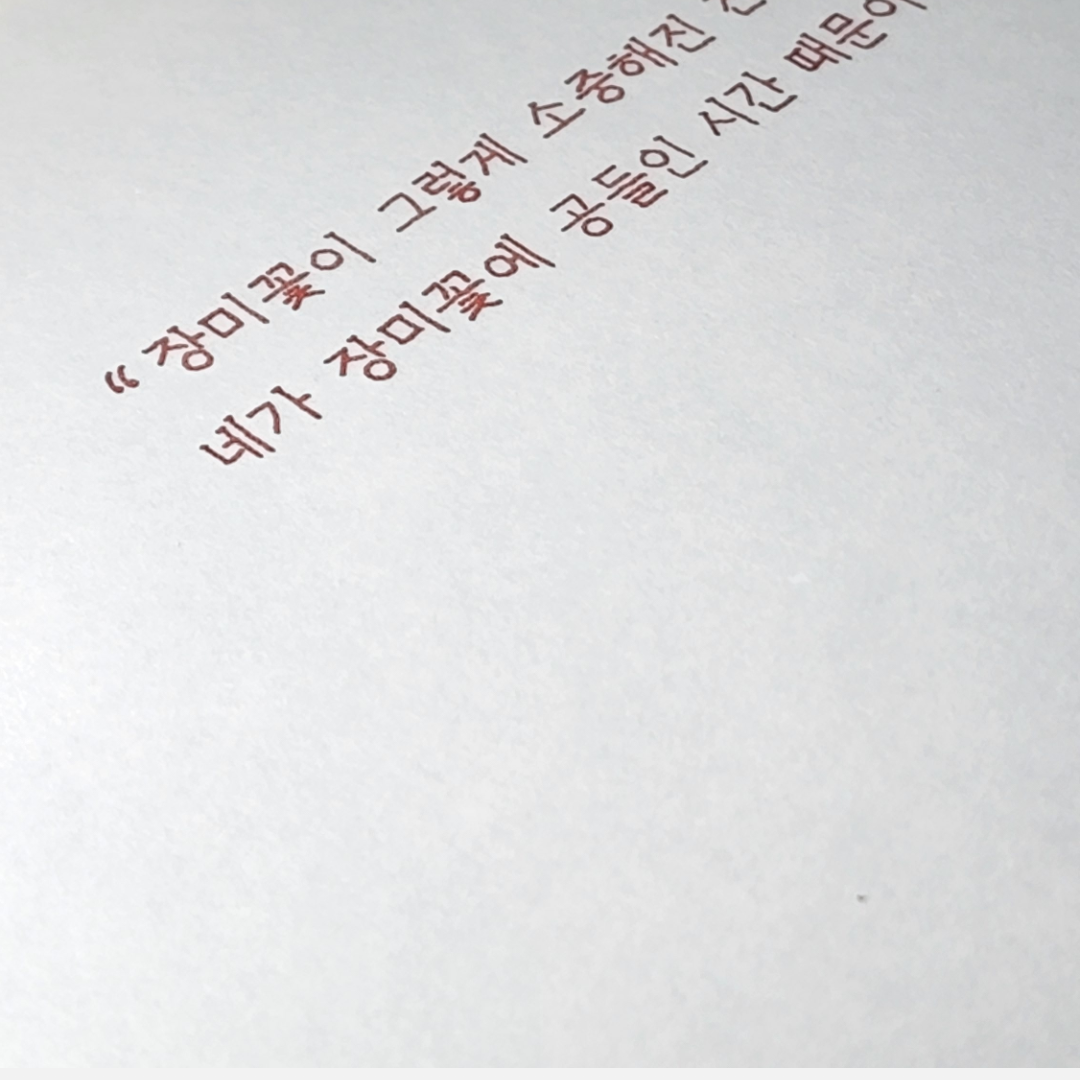 “ 장미꽃이 그렇게 소중해진
네가 장미꽃에 공들인 시간